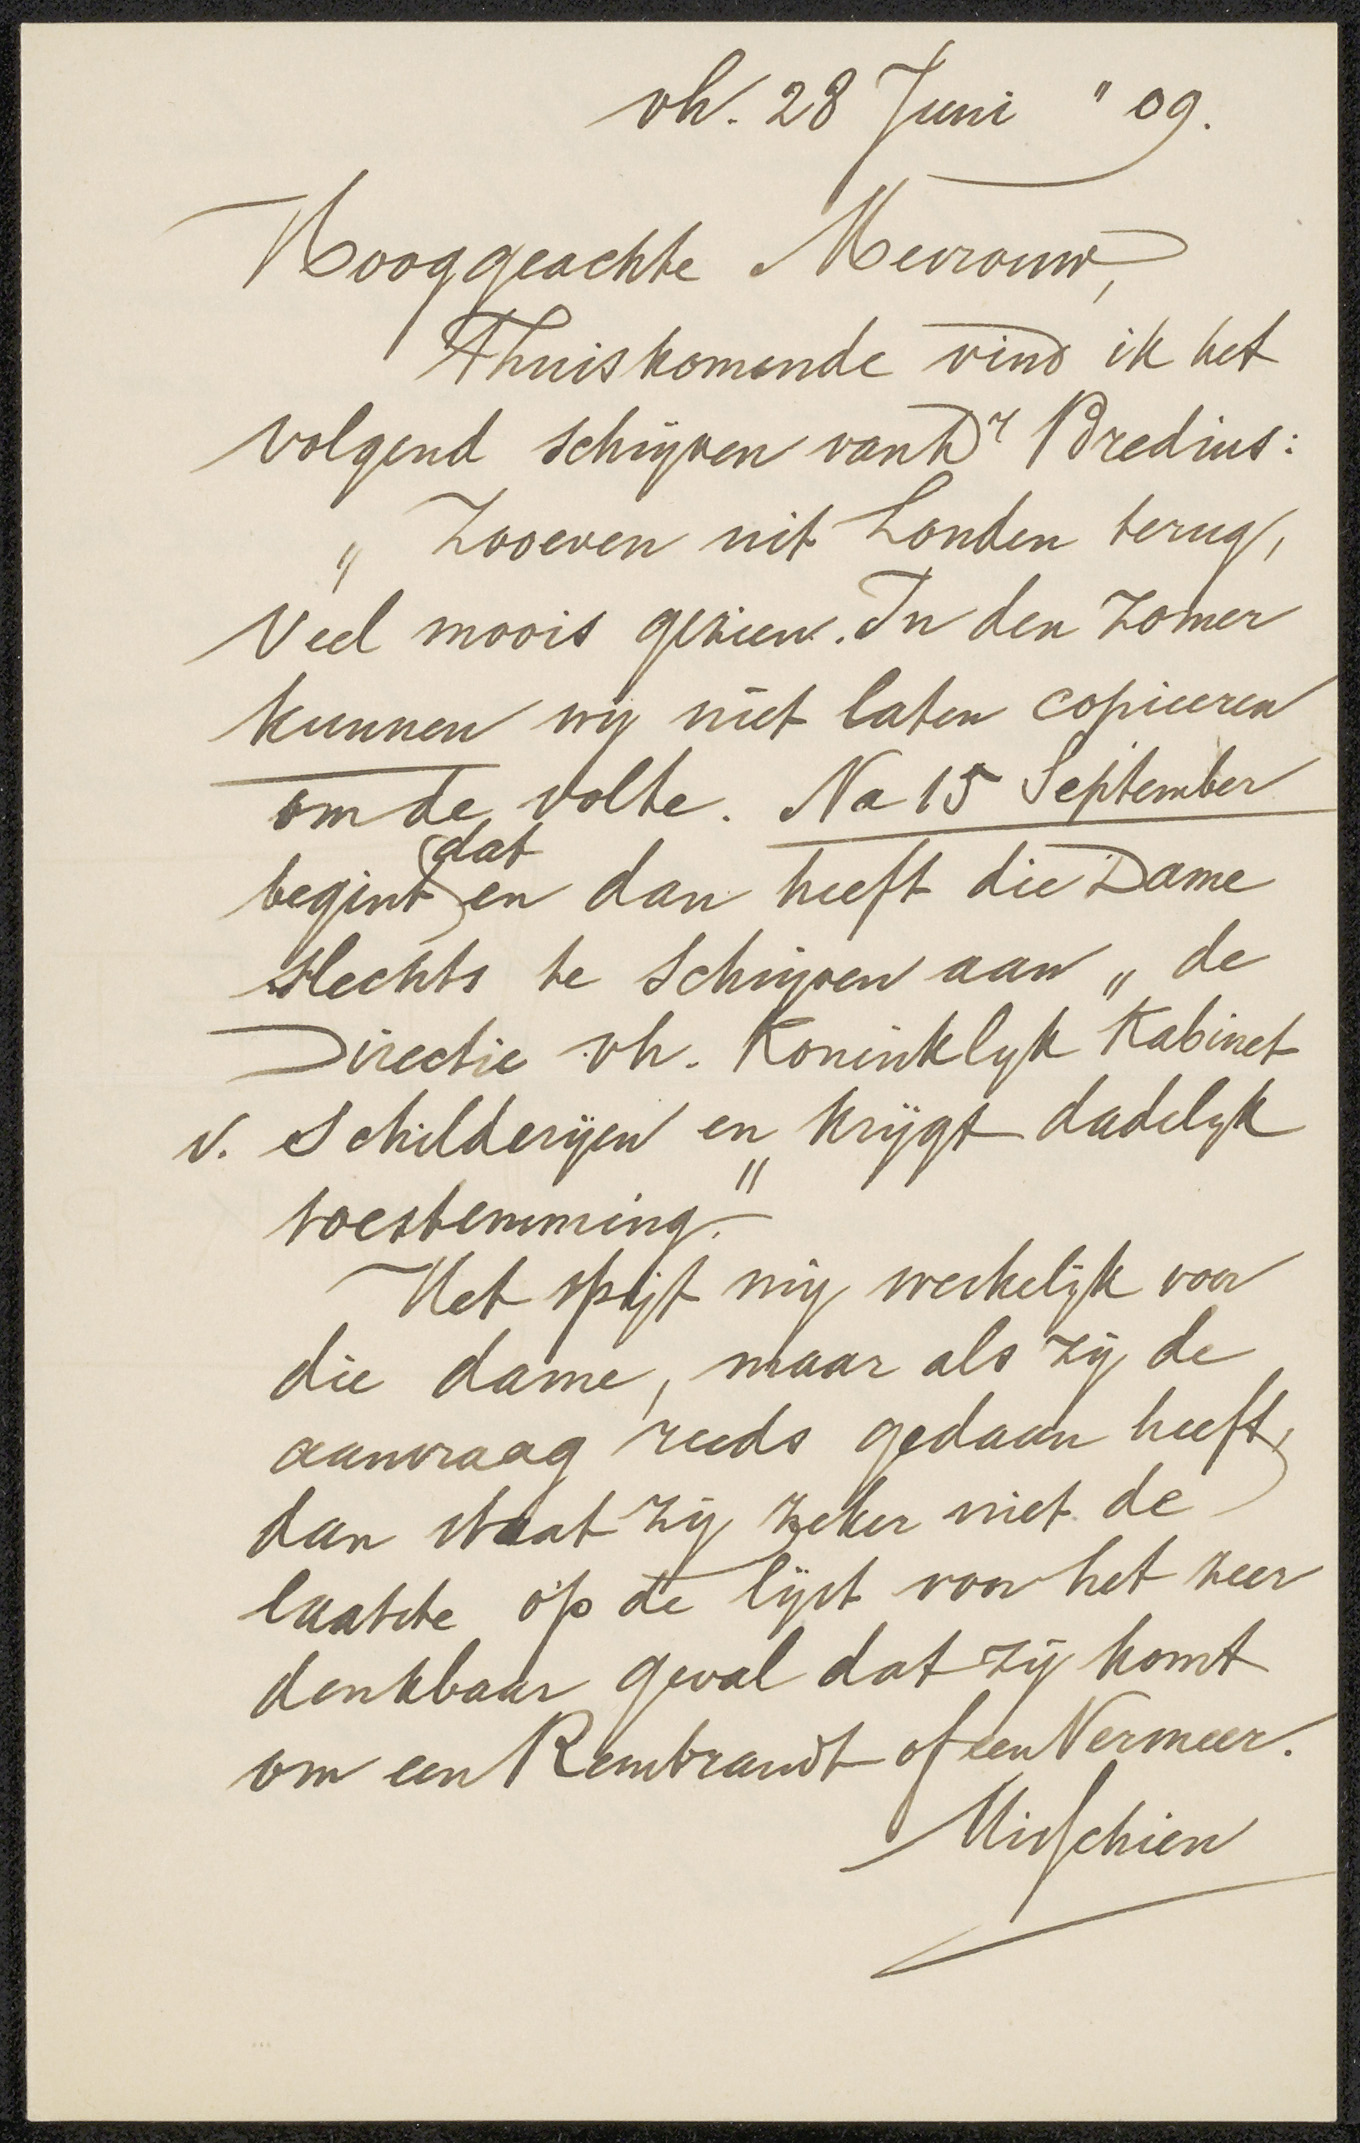 vh. 28 Juni "09.
Hooggeachte Mevrouw,
Thuiskomende vind ik het
volgend schrijven van Dr Bredius:
„ Zooeven uit Londen terug,
veel moois gezien. In den zomer
kunnen wij niet laten copieeren
om de volte. Na 15 September
begint dat en dan heeft die Dame
slechts te schrijven aan „ de
Directie vh. Koninklyk Kabinet
v. Schilderijen en krijgt dadelyk
toestemming."
Het spijt mij werkelijk voor
die dame, maar als zij de
aanvraag reeds gedaan heeft,
dan staat zij zeker niet de
laatste op de lijst voor het zeer
denkbaar geval dat zij komt
om een Rembrandt of een Vermeer.
Misschien